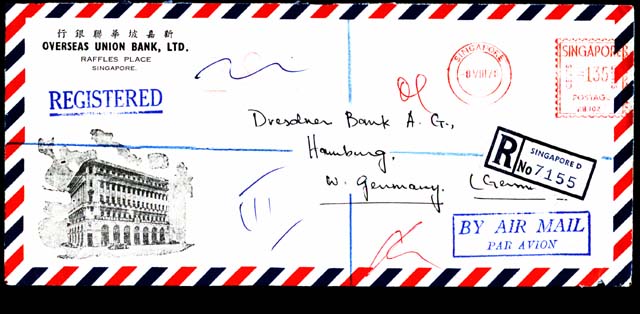 新嘉坡華聯銀行
OVERSEAS UNION BANK, LTD.
RAFFLES PLACE
SINGAPORE.
REGISTERED
SINGAPORE
SINGAPORE
135
POSTAGE
Dresdner Bank A. G.,
Hamburg,
W. Germany.
R
SINGAPORE D
No 7155
BY AIR MAIL
PAR AVION